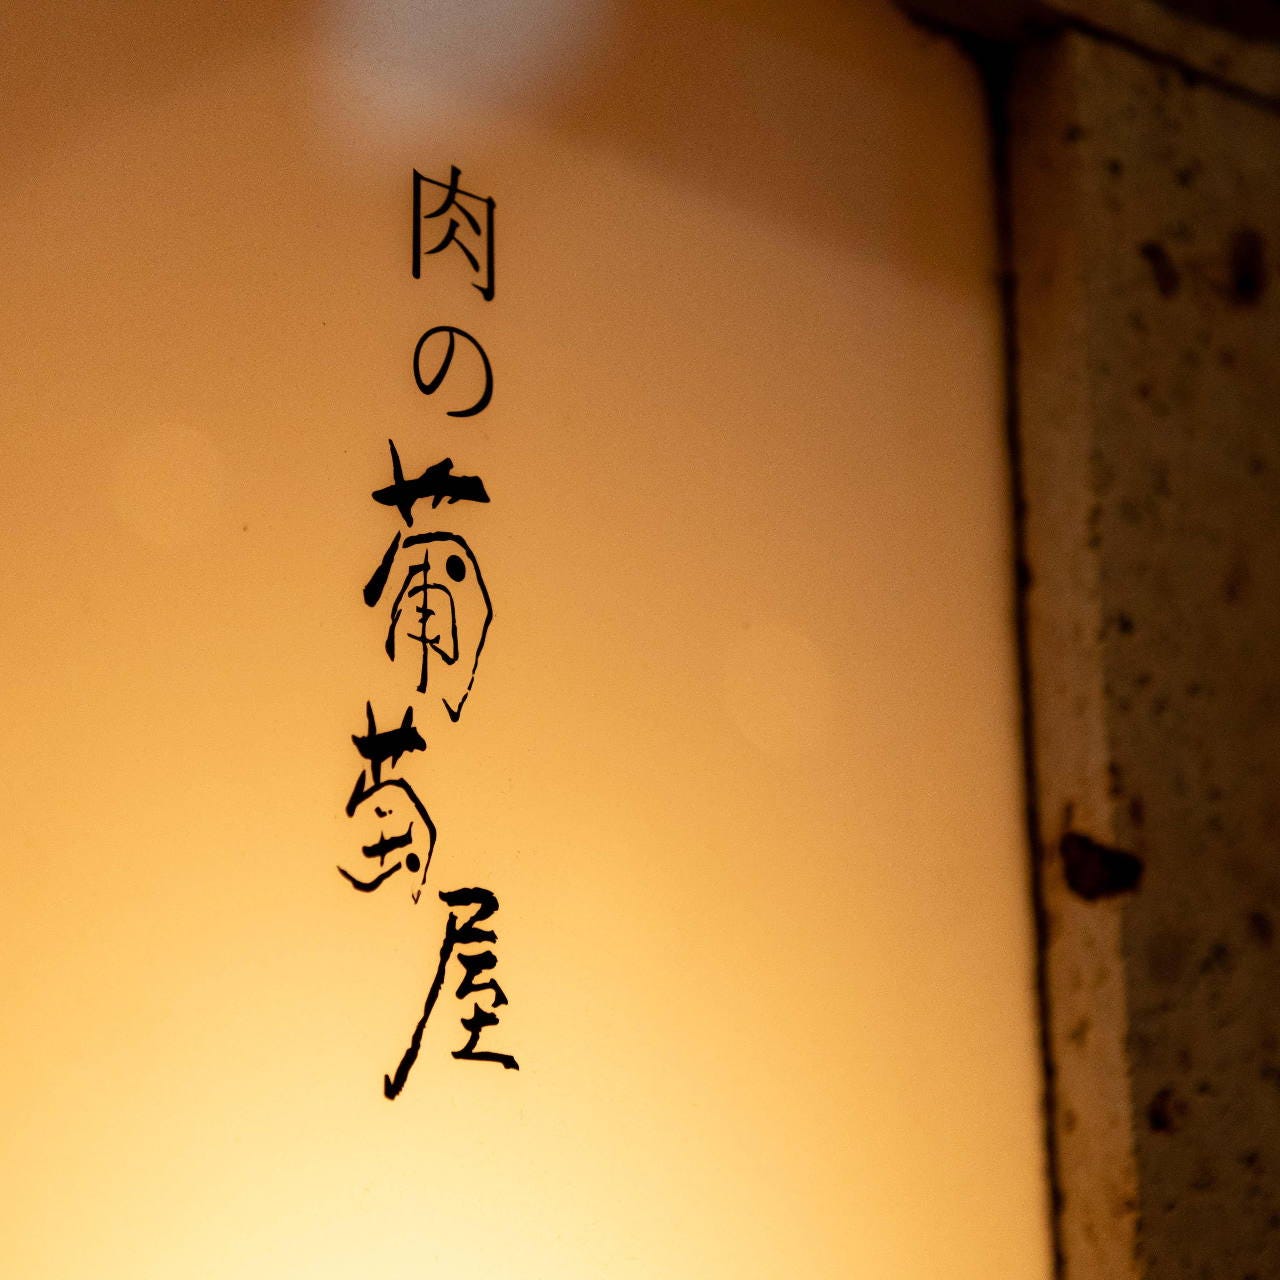 肉の葡萄屋